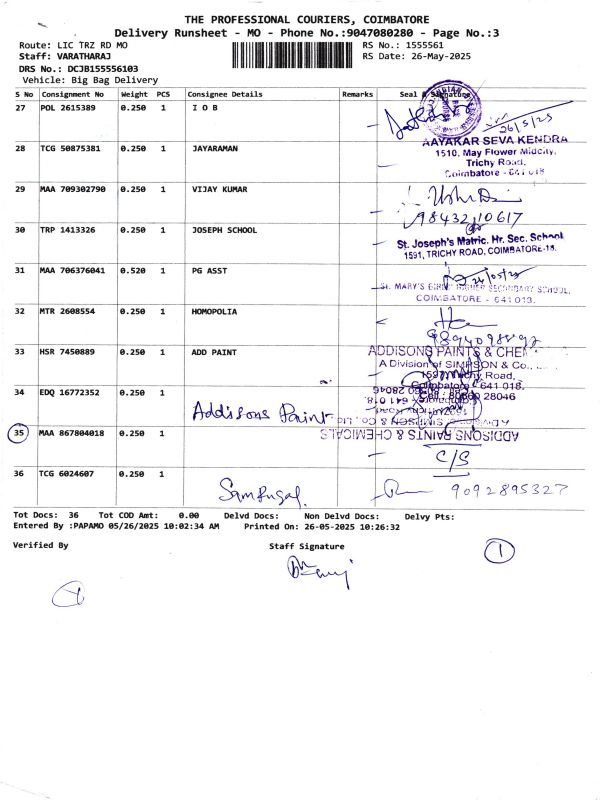 THE PROFESSIONAL COURIERS, COIMBATORE
Delivery Runsheet - MO - Phone No.:9047080280 - Page No.:3
Route: LIC TRZ RD MO RS No.: 1555561
Staff: VARATHARAJ RS Date: 26-May-2025
DRS No.: DCJB155556103
Vehicle: Big Bag Delivery
S No Consignment No Weight PCS Consignee Details Remarks Seal & Signature
27 POL 2615389 0.250 1 I O B
26/5/25
28 TCG 50875381 0.250 1 JAYARAMAN
AAYAKAR SEVA KENDRA
1510, May Flower Midcity,
Trichy Road,
Coimbatore - 641 018
29 MAA 709302790 0.250 1 VIJAY KUMAR
9843210617
30 TRP 1413326 0.250 1 JOSEPH SCHOOL
St. Joseph's Matric. Hr. Sec. School
1591, TRICHY ROAD, COIMBATORE-18.
31 MAA 706376041 0.520 1 PG ASST
ST. MARY'S GIRLS HIGHER SECONDARY SCHOOL,
COIMBATORE - 641 013.
32 MTR 2608554 0.250 1 HOMOPOLIA
33 HSR 7450889 0.250 1 ADD PAINT
ADDISONS PAINTS & CHEM
A Division of SIMPSON & Co.,
Trichy Road,
Coimbatore - 641 018.
34 EDQ 16772352 0.250 1
Addisons Paint
35 MAA 867804018 0.250 1
ADDISONS PAINTS & CHEMICALS
C/S
36 TCG 6024607 0.250 1
9092895327
Tot Docs: 36 Tot COD Amt: 0.00 Delvd Docs: Non Delvd Docs: Delvy Pts:
Entered By :PAPAMO 05/26/2025 10:02:34 AM Printed On: 26-05-2025 10:26:32
Verified By Staff Signature
1